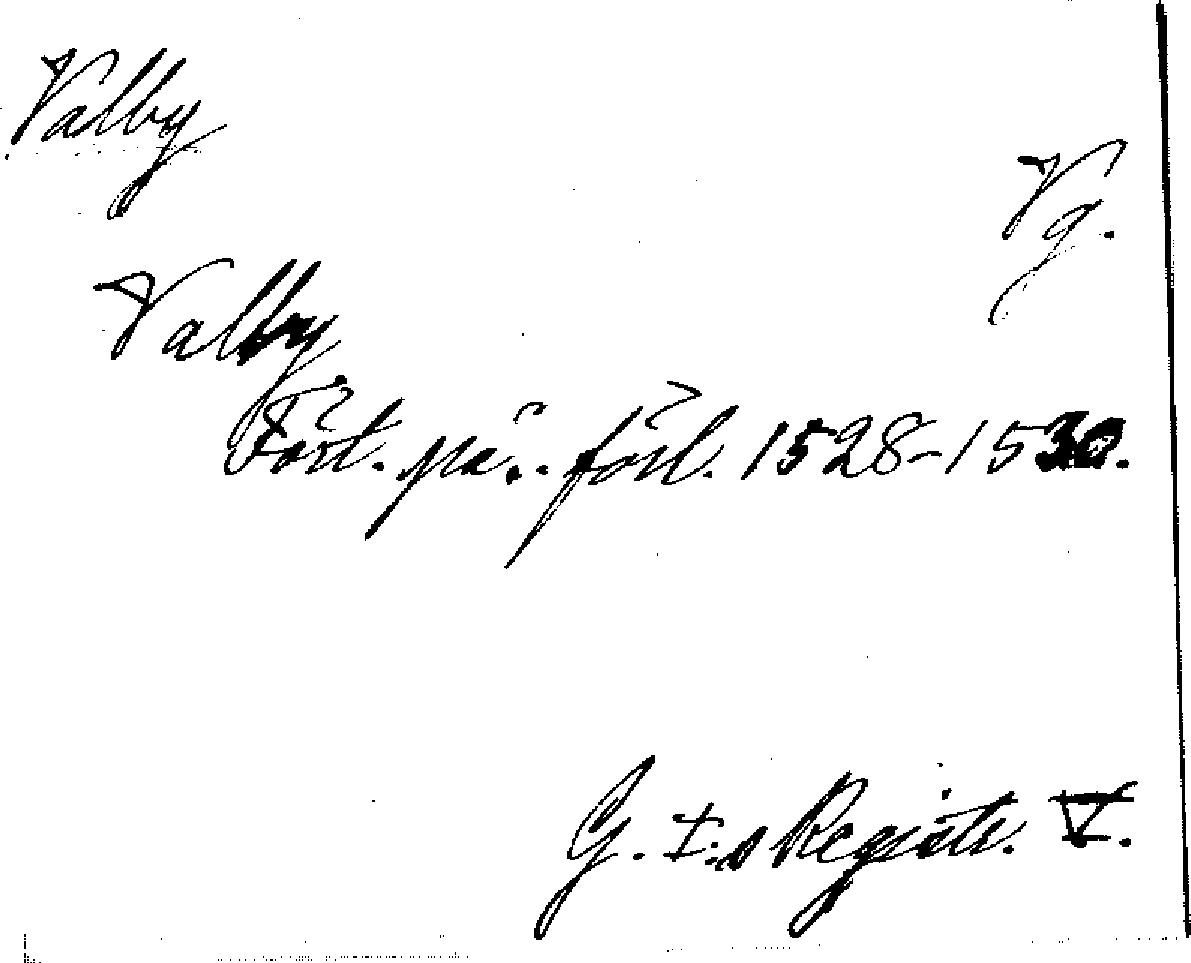 Valby
Vg.
Valby
Fört. på förl. 1528-1530.
G. I:s Registr. V.